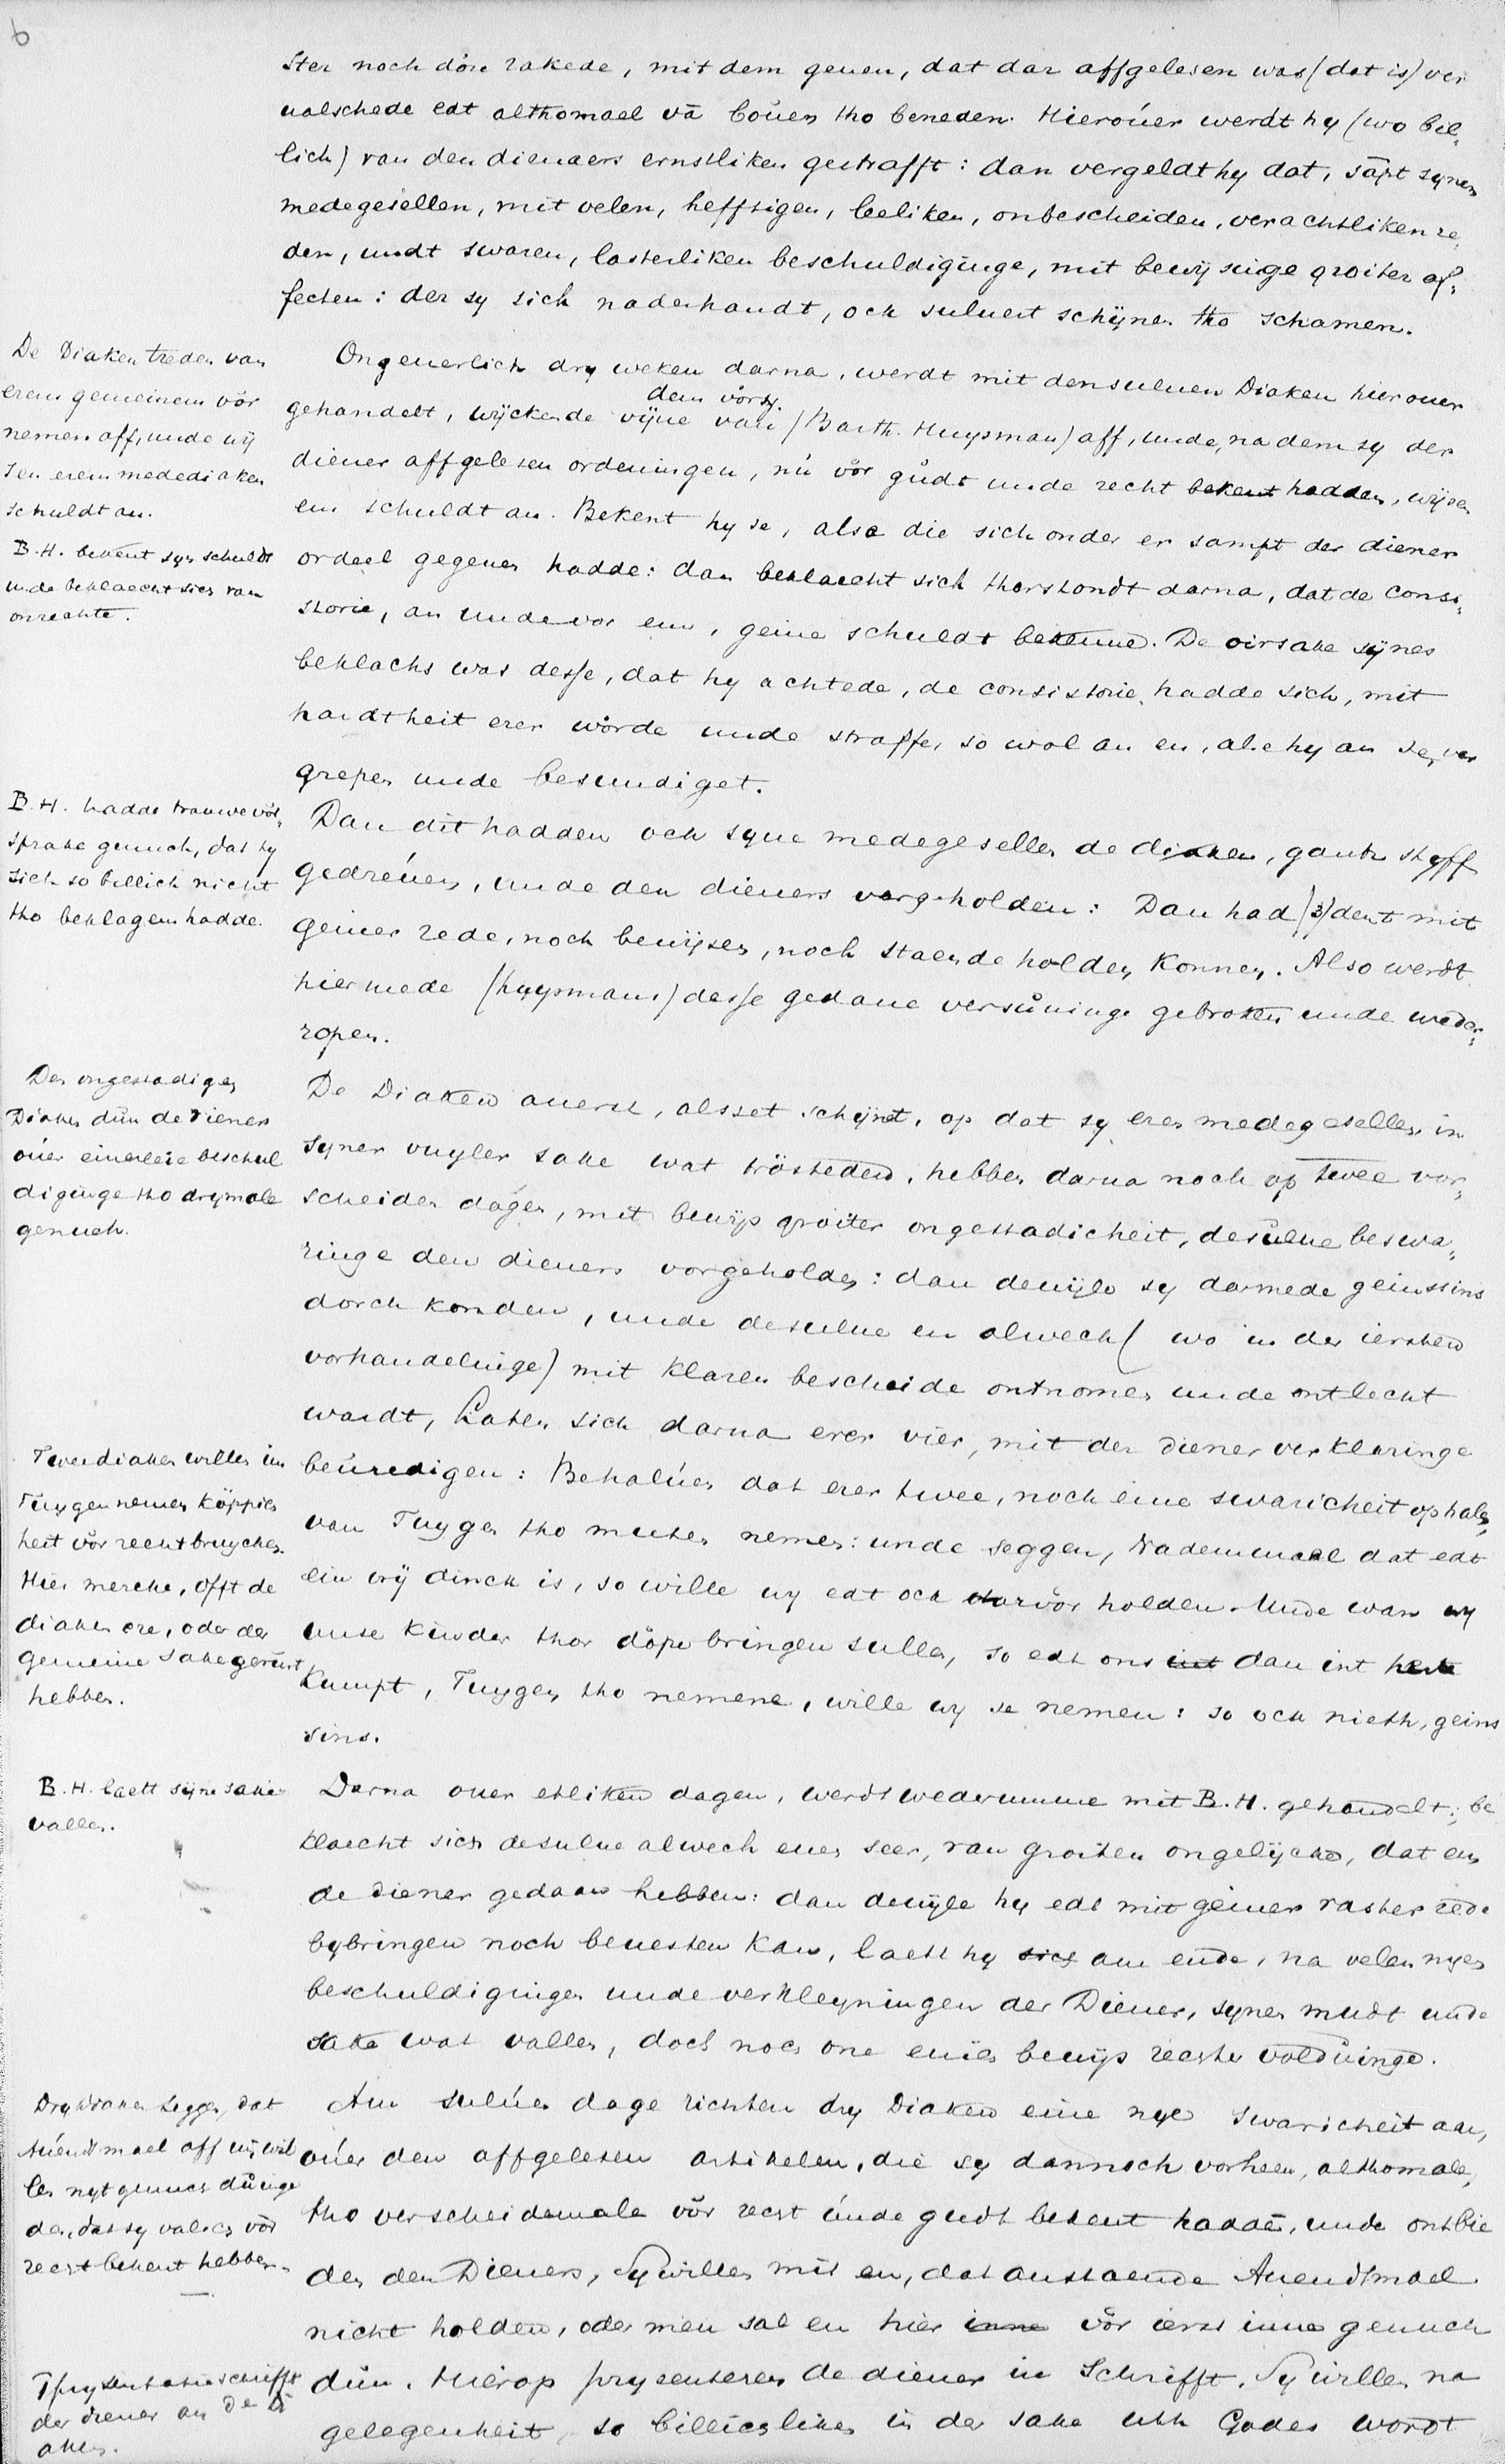 6
ster noch döre rakede, mit dem genen, dat dar affgelesen was (dat is) ver
ualschede edt althomael vā bouen tho beneden. Hierouer werdt hy (wo bil,
lich) van den dienaers ernstliken gestrafft: dan vergeldt hy dat, sāpt synen
medegesellen, mit velen, hefftigen, leeliken, onbescheiden, verachtliken re,
den, undt swaren, lasterliken beschuldigūnge, mit bewysinge groiter af,
fecten: der sy sich naderhandt, ock suluest schijnen tho schamen.
De Diaken treden van
erem gemeinem vör
nemen aff, unde wij
sen erem mededi aken
schuldt an.
B.H. bekent syn schuldt
unde beklaecht sich van
onrechte.
Ongeuerlich dry weken darna, werdt mit densuluen Diaken hierouer
gehandelt, wijckende vijue van dem vörs. (Barth. Huysman) aff, unde, na dem sy der
diener affgelesen ordeningen, nú vör gudt unde recht bekent hadden, wijsen
em schuldt an. Bekent hy se, alse die sich onder er sampt der diener
ordeel gegeuen hadde: dan beklaecht sich tharstondt darna, dat de consi,
storie, an unde vor em, geine schuldt bekenne. De oirsake sijnes
beklachs was desse, dat hy achtede, de consistorie hadde sich, mit
hardtheit erer wörde unde straffe, so wol an en, alse hy an se, ver
grepen unde besundiget.
B.H. hadde trauwe vör,
sprake genuch, dat hy
sich so billich nicht
tho beklagem hadde.
Dan dit hadden ock syne medegesellen de diaken, gantz styff
gedreuen, unde den dieners vorgeholden: Dan had (3) dent mit
geiner rede, noch bewijsen, noch staende holden konnen. Also werdt
hiermede (huysmans) desse gedane versūninge gebroken unde weder,
ropen.
Den ongestadigen
Diaken dūn de diener
ouer einerleie beschul
digūnge tho drymale
genuch.
De Diaken auerst, alsset schijnt, op dat sy eren medegesellen in
syner vuyler sake wat trösteden, hebben darna noch op twee vor,
scheiden dagen, mit bewijs groiter ongestadicheit, desulue beswa,
ringe den dieners vorgeholden: dan dewijle sy darmede geinssins
dorch konden, unde desulue en alwech (wo in der iersten
vorhandelinge) mit klaren bescheide ontnomen unde ontlecht
wardt, Laten sich darna erer vier, mit der diener verklaringe
beuredigen: Behaluen dat erer twee, noch eine swaricheit ophalen,
van Tuygen tho muten nemen: unde seggen, Nademmael dat edt
ein vrij dinck is, so wille wy edt ock darvör holden. Unde wan wy
unse kinder thor döpe bringen sullen, so edt ons dan int
kumpt, Tuygen tho nemene, wille wy se nemen: so ock nieth, geins
sins.
Twee diaken willen im
Tuygen nemen köppic
heit vör recht bruycken.
Hier mercke, offt de
diaken ere, oder der
gemeine sake geuört
hebben.
B.H. laett syne sake
vallen.
Darna ouer etliken dagen, werdt wedermme mit B.H. gehandelt; be
klaecht sich desulue alwech euen seer, van groiten ongelijcke, dat em
de diener gedaan hebben: dan dewijle hy edt mit geiner vaster rede
bybringen noch beuesten kan, laett hy am ende, na velen nyen
beschuldigingen unde verkleyningen der Diener, synen mudt unde
sake wat vallen, doch noch one einich bewijs rechter voldūinge.
Dry diaken seggen, dat
Auendtmael aff wy wil
len nyt genuch
den, dat sy valsch vör
recht bekent hebben.
Am suluen dage richten dry Diaken eine nye swaricheit aan,
ouer den affgelesen artikelen, die sy dannoch vorheen, althomale,
tho verscheidemale vör recht unde gudt bekent hadde, unde ontbie
den den Dieners, Sy willen mit en, dat anstaende Auendtmael
nicht holden, oder men sal en hier vör ierst inne genuch
dūn. Hierop presenteren de diener in Schrifft, Sy willen na
gelegenheit, so billicsliken in der sake uth Godes wordt
Tpresentatie schrifft
der diener an de Di
aken.